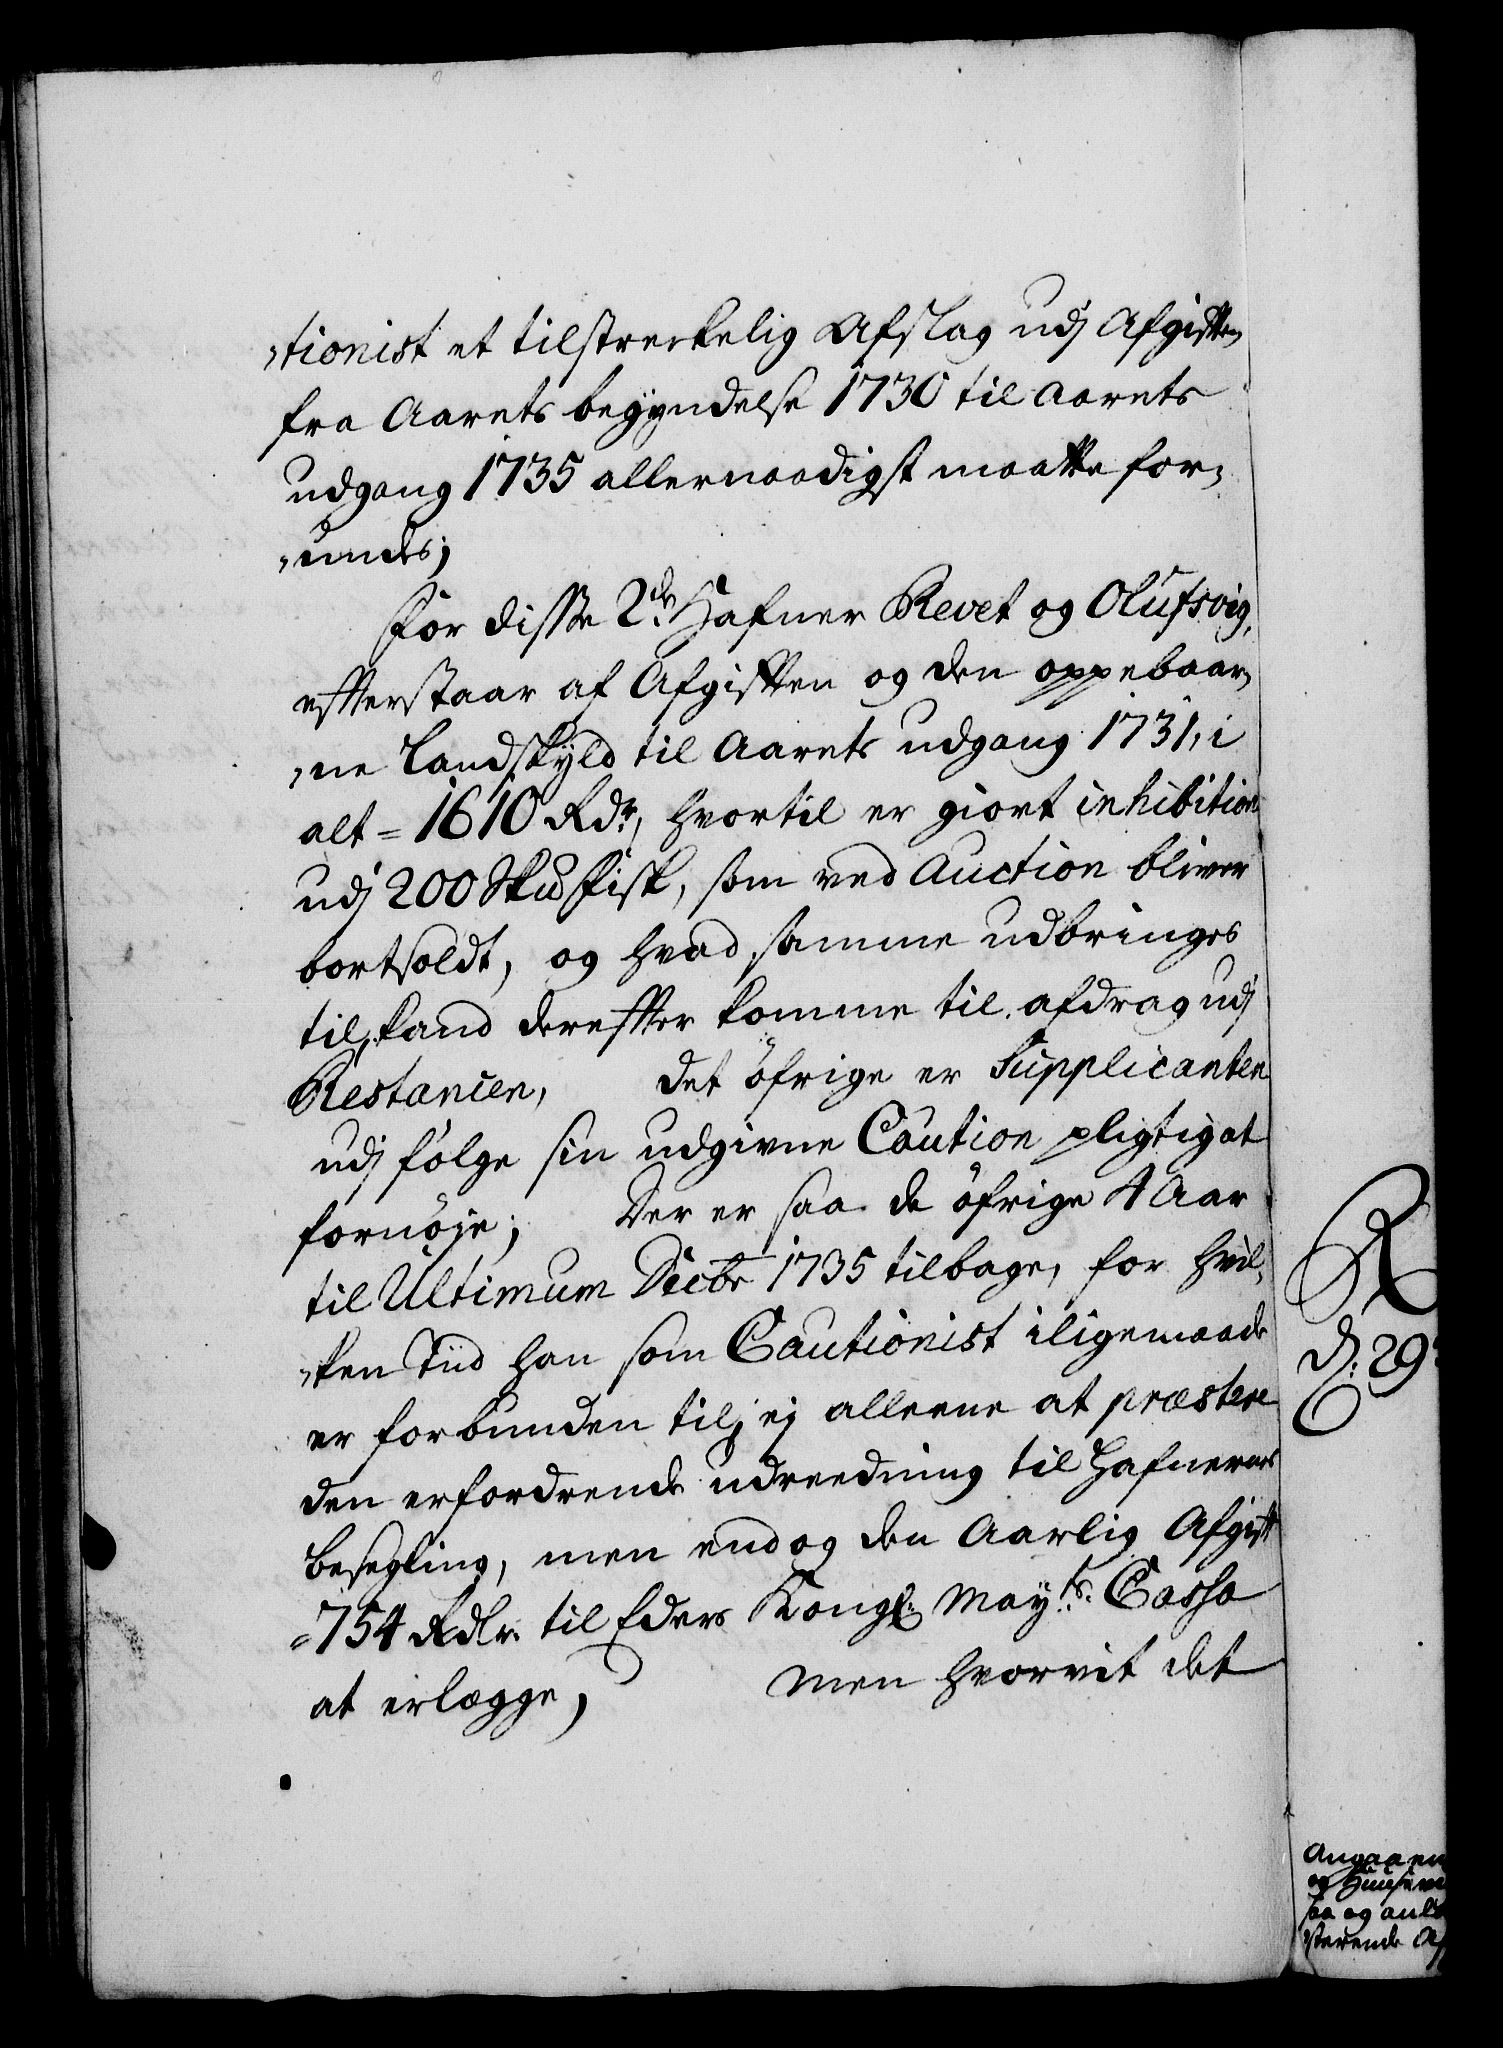 „tionist et tilstrerkelig Afslag udj Afgiften
fra Aarets begyndelse 1730 til Aarets
udgang 1735 allernaadigst maatte for„
„undes;
For disse 2de Hafner Revet og Olufsvig,
efterstaar af Afgiften og den oppebaar„
„ne Landskyld til Aarets udgang 1731, i
alt = 1610 Rdr, hvortil er giort inhibition
udj 200 Skd Fisk, som ved Auction bliver
bortsoldt, og hvad samme udbringes
til, kand derefter komme til afdrag udj
Restancen, det öfrige er Supplicanten
udj følge sin udgivne Caution pligtig at
fornöje; Der er saa de öfrige 4 Aar
til Ultimum Decbr 1735 tilbage, for hvil„
„ken Tiid han som Cautionist iligemaade
er forbunden til, ej alleene at præstere
den erfordrende udreedning til Hafnernes
besegling, men endog den Aarlig Afgift
=754 Rdlr. til Eders Kongl. Mayts. Cassa
at erlægge, Men hvorvit det
R
D: 29
Angaaen
og
saa og
sterende Af